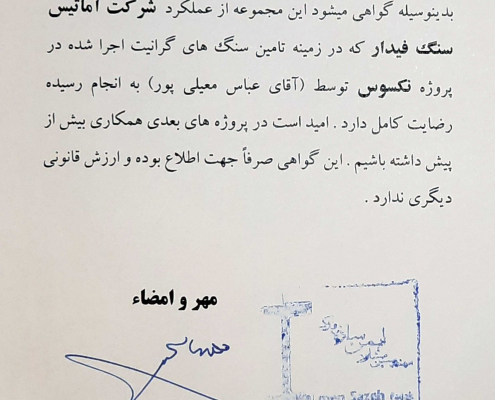 بدینوسیله گواهی میشود این مجموعه از عملکرد شرکت آماتیس
سنگ فیدار که در زمینه تامین سنگ های گرانیت اجرا شده در
پروژه نکسوس توسط (آقای عباس معیلی پور) به انجام رسیده
رضایت کامل دارد . امید است در پروژه های بعدی همکاری بیش از
پیش داشته باشیم . این گواهی صرفاً جهت اطلاع بوده و ارزش قانونی
دیگری ندارد .
مهر و امضاء
مهندسین مشاور